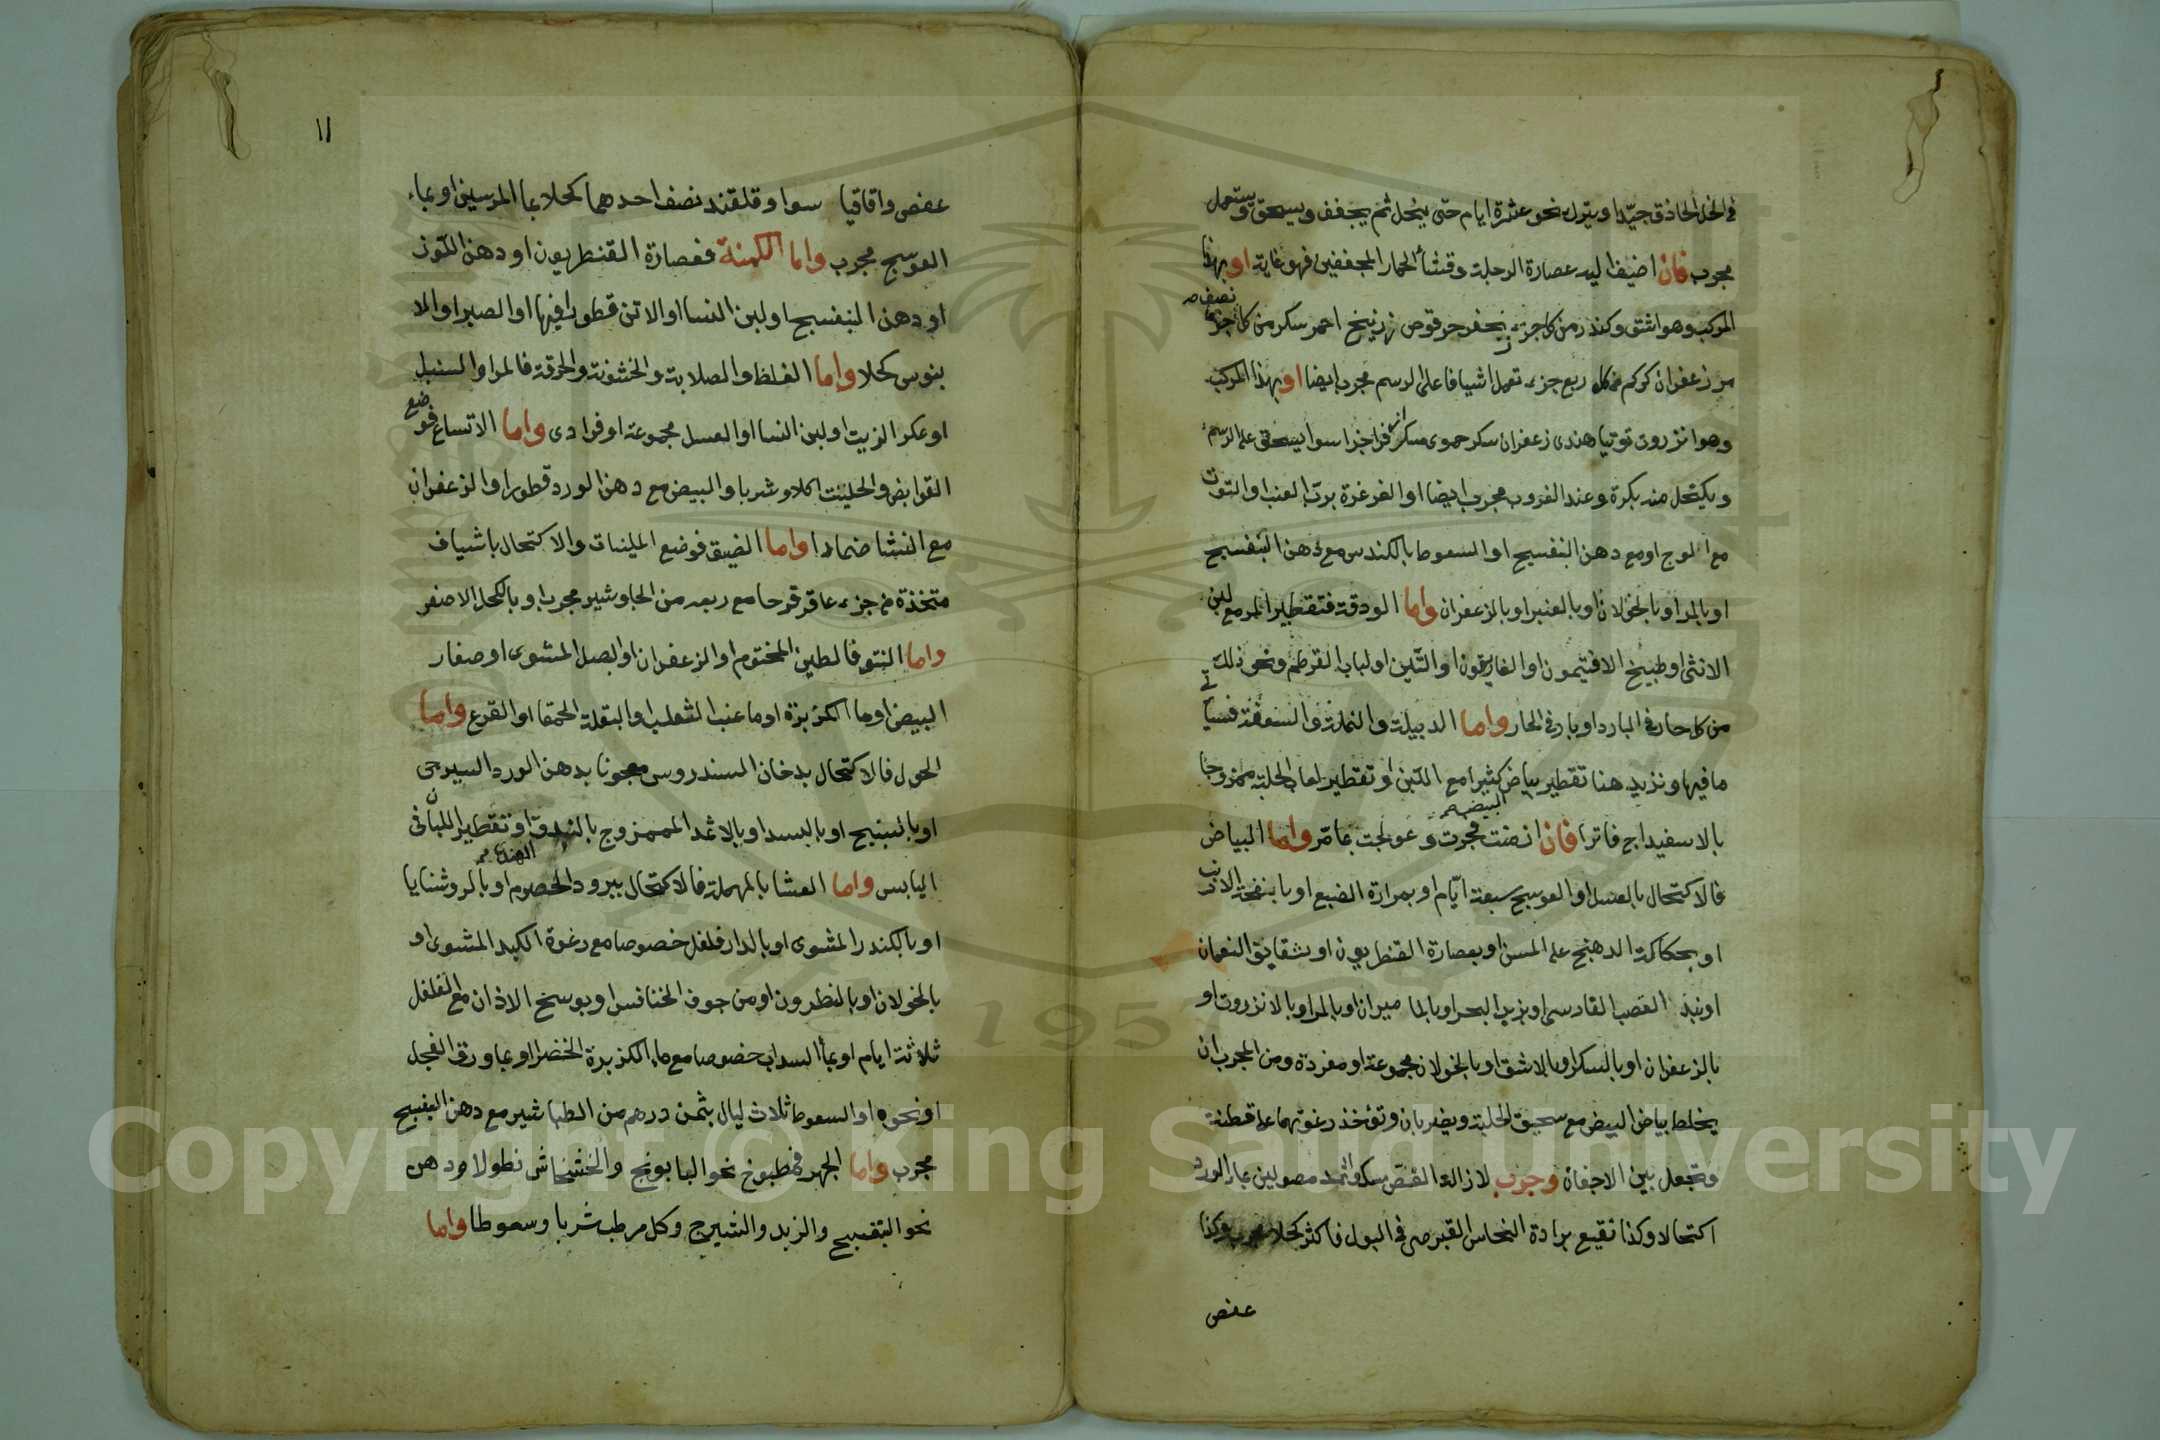 في الخل الحاذق جيدا ويترك نحو عشرة ايام حتى ينحل ثم يجفف ويسحق ويستعمل
مجرب فان اضيف اليه عصارة الرجلة وقثا الحمار المجففين فهو غاية او بهذا
المركب وهو اشق وكندر من كل جزء زنجفر حرقوص زرنيخ احمر سكر من كل نصف جزء
مر زعفران كركم من كل ربع جزء تعمل اشيافا على الرسم مجرب ايضا او بهذا المركب
وهو انزروت توتيا هندى زعفران سكر حموى اجزا سوا يسحق على الرسم
ويكتحل منه بكرة وعند الغروب مجرب ايضا او الغرغرة برب العنب او التوت
مع الوج او مع دهن البنفسج او السعوط بالكندس مع دهن البنفسج
او بالمر او بالخولان او بالعنبر او بالزعفران واما الودقة فتقطير المر مع لبن
الانثى او طبيخ الافتيمون او الغاريقون او التين او لباب القرطم ونحو ذلك
من كل حار في البارد او بارد في الحار واما الدبيلة والنملة والسعفة فسياتي
ما فيها ونزيد هنا تقطير بياض البيض كثيرا مع اللبن او تقطير لعاب الحلبة ممزوجا
بالاسفيداج فاترا فان انضت فجرت وعولجت بما مر واما البياض
فالاكتحال بالعسل او العوسج سبعة ايام او بمرارة الضبع او بانفحة الارنب
او بحكاكة الدهنج على المسن او بعصارة القنطريون او بشقايق النعمان
او القصب القادسى او بزبد البحر او بالماميران او بالمر او بالانزروت او
بالزعفران او بالسكر او بالاشق او بالخولان مجموعة او مفردة ومن المجرب ان
يخلط بياض البيض مع سحيق الحلبة ويضربان وتوخذ رغوتهما على قطنة
وتجعل بين الاجفان وجرب لازالة سكر واثمد مصولين بماء الورد
اكتحالا وكذا نقيع برادة النحاس القبرصى في البول فاكثر كحلا مجرب وكذا
عفص
١١
عفص واقاقيا سوا وقلقند نصف احدهما كحلا بما المرسين او بماء
العوسج مجرب واما الكمنة فعصارة القنطريون او دهن اللوز
او دهن البنفسج او لبن النسا او الاتن قطورا فيها او الصبر او الا
بنوس كحلا واما الغلظ والصلابة والخشونة والحرقة فالمر او السنبل
او عكر الزيت او لبن النسا او العسل مجموعة او فرادى واما الاتساع فوضع
القوابض والحلتيت اكلا وشربا والبيض مع دهن الورد قطورا والزعفران
مع النشا ضمادا واما الضيق فوضع الملينات والاكتحال باشياف
متخذة من جزء عاقرقرحا مع ربعه من الجاوشير مجرب او بالكحل الاصفر
واما النتو فالطين المختوم او الزعفران او البصل المشوى او صفار
البيض او ما الكزبزة او ما عنب الثعلب او البقلة الحمقا او القرع واما
الحول فالاكتحال بدخان السندروس معجونا بدهن الورد السيرجى
او بالسبج او بالبسد او بالاثمد الممزوج بالبندق الهندى او تقطير اللبان في
اليابس واما العشا بالمهملة فالاكتحال ببرود الحصرم او بالروشنايا
او بالكندر المشوى او بالدار فلفل خصوصا مع رغوة الكبد المشوى او
بالخولان او بالنطرون او من جوف الخنافس او بوسخ الاذان مع الفلفل
ثلاثة ايام او بما السداب خصوصا مع ماء الكزبرة الخضرا او بما ورق الفجل
او نحوه او السعوط ثلاث ليال بثمن درهم من الطباشير مع دهن البنفسج
مجرب واما الجهر فمطبوخ نحو البابونج والخشخاش نطولا ودهن
نحو البنفسج والزبد والشيرج وكل مرطب شربا وسعوطا واما
Copyright © King Saud University
1957